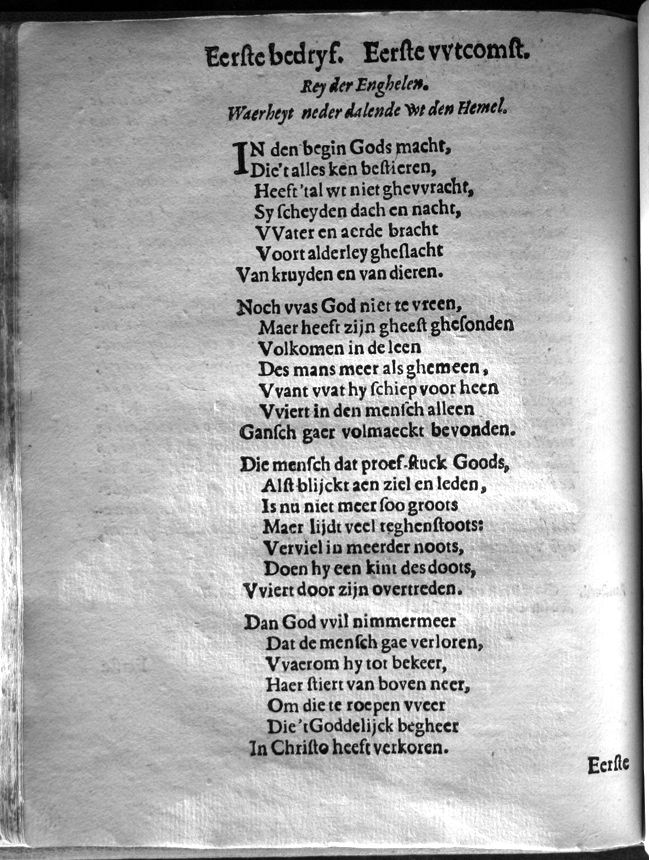 Eerſte bedryf. Eerſte vvtcomſt.
Rey der Enghelen.
Waerheyt neder dalende wt den Hemel.
IN den begin Gods macht,
Die't alles ken beſtieren,
Heeft 'tal wt niet ghevvracht,
Sy ſcheyden dach en nacht,
VVater en aerde bracht
Voort alderley gheſlacht
Van kruyden en van dieren.
Noch vvas God niet te vreen,
Maer heeft zijn gheeſt gheſonden
Volkomen in de leen
Des mans meer als ghemeen,
Vvant vvat hy ſchiep voor heen
Vviert in den menſch alleen
Ganſch gaer volmaeckt bevonden.
Die menſch dat proef-ſtuck Goods,
Alſt blijckt aen ziel en leden,
Is nu niet meer ſoo groots
Maer lijdt veel teghenſtoots:
Verviel in meerder noots,
Doen hy een kint des doots,
Vviert door zijn overtreden.
Dan God vvil nimmermeer
Dat de menſch gae verloren,
Vvaerom hy tot bekeer,
Haer ſtiert van boven neer,
Om die te roepen vveer
Die 't Goddelijck begheer
In Chriſto heeft verkoren.
Eerſte